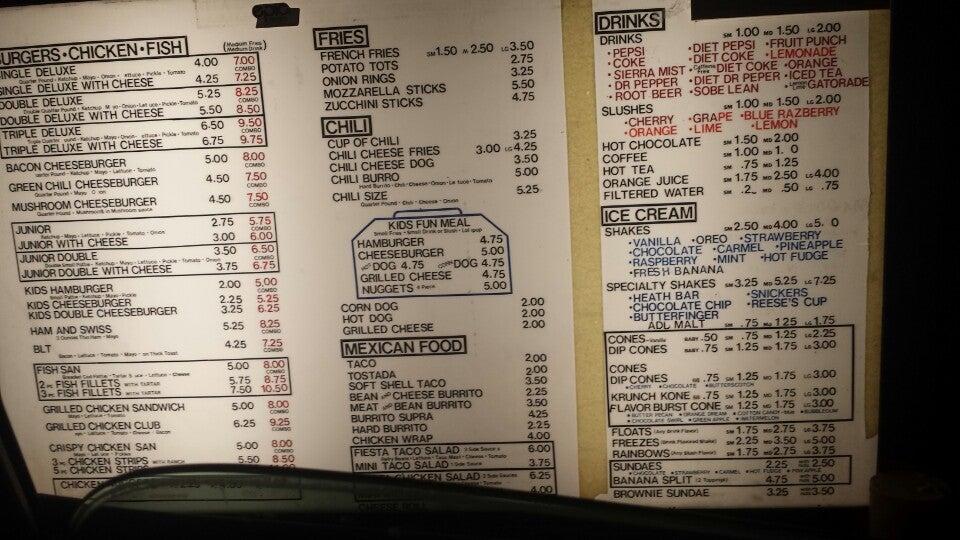 BURGERS•CHICKEN•FISH (Medium Fries Medium Drink)
SINGLE DELUXE 4.00 7.00
Quarter Pound - Ketchup - Mayo - Onion - Lettuce - Pickle - Tomato COMBO
SINGLE DELUXE WITH CHEESE 4.25 7.25
DOUBLE DELUXE 5.25 8.25
COMBO
DOUBLE DELUXE WITH CHEESE 5.50 8.50
TRIPLE DELUXE 6.50 9.50
COMBO
TRIPLE DELUXE WITH CHEESE 6.75 9.75
BACON CHEESEBURGER 5.00 8.00
COMBO
GREEN CHILI CHEESEBURGER 4.50 7.50
COMBO
MUSHROOM CHEESEBURGER 4.50 7.50
Quarter Pound - Mushrooms in Mushroom sauce COMBO
JUNIOR 2.75 5.75
COMBO
JUNIOR WITH CHEESE 3.00 6.00
JUNIOR DOUBLE 3.50 6.50
COMBO
JUNIOR DOUBLE WITH CHEESE 3.75 6.75
KIDS HAMBURGER 2.00 5.00
Small Pattie - Ketchup - Mayo - Pickle COMBO
KIDS CHEESEBURGER 2.25 5.25
KIDS DOUBLE CHEESEBURGER 3.25 6.25
HAM AND SWISS 5.25 8.25
3 Ounces Thin Ham - Mayo COMBO
BLT 4.25 7.25
Bacon - Lettuce - Tomato - Mayo - on Thick Toast COMBO
FISH SAN 5.00 8.00
COMBO
2 PC FISH FILLETS WITH TARTAR 5.75 8.75
3 PC FISH FILLETS WITH TARTAR 7.50 10.50
GRILLED CHICKEN SANDWICH 5.00 8.00
Mayo - Lettuce - Tomato COMBO
GRILLED CHICKEN CLUB 6.25 9.25
COMBO
CRISPY CHICKEN SAN 5.00 8.00
COMBO
3 PC CHICKEN STRIPS WITH RANCH 5.50 8.50
CHICKEN STRIPS
CHICKEN
FRIES
FRENCH FRIES SM 1.50 M 2.50 LG 3.50
POTATO TOTS 2.75
ONION RINGS 3.25
MOZZARELLA STICKS 5.50
ZUCCHINI STICKS 4.75
CHILI
CUP OF CHILI 3.25
CHILI CHEESE FRIES 3.00 LG 4.25
CHILI CHEESE DOG 3.50
CHILI BURRO 5.00
Hard Burrito - Chili - Cheese - Onion - Le tuce - Tomato
CHILI SIZE 5.25
Quarter Pound - Chili - Cheese - Onion
KIDS FUN MEAL
Small Fries - Small Drink or Slush - Lol ipop
HAMBURGER 4.75
CHEESEBURGER 5.00
HOT DOG 4.75 CORN DOG 4.75
GRILLED CHEESE 4.75
NUGGETS 4 Piece 5.00
CORN DOG 2.00
HOT DOG 2.00
GRILLED CHEESE 2.00
MEXICAN FOOD
TACO 2.00
TOSTADA 2.00
SOFT SHELL TACO 3.50
BEAN AND CHEESE BURRITO 2.25
MEAT AND BEAN BURRITO 3.50
BURRITO SUPRA 4.25
HARD BURRITO 2.25
CHICKEN WRAP 4.00
FIESTA TACO SALAD 3 Side Sauce s 6.00
Patty Beans - Lettuce - Taco Meat - Cheese - Tomato
MINI TACO SALAD 1 Side Sauce 3.75
CHICKEN SALAD 3 Side Sauces 6.25
4.00
DRINKS
DRINKS SM 1.00 MD 1.50 LG 2.00
•PEPSI •DIET PEPSI •FRUIT PUNCH
COKE •DIET COKE •LEMONADE
•SIERRA MIST •Caffeine Free DIET COKE •ORANGE
•DR PEPPER •DIET DR PEPER •ICED TEA
•ROOT BEER •SOBE LEAN •GATORADE
SLUSHES SM 1.00 MD 1.50 LG 2.00
•CHERRY •GRAPE •BLUE RAZBERRY
•ORANGE •LIME •LEMON
HOT CHOCOLATE SM 1.50 MD 2.00
COFFEE SM 1.00 MD 1. 0
HOT TEA SM .75 MD 1.25
ORANGE JUICE SM 1.75 MD 2.50 LG 4.00
FILTERED WATER SM .2 MD .50 LG .75
ICE CREAM
SHAKES SM 2.50 MD 4.00 LG 5. 0
•VANILLA •OREO •STRAWBERRY
•CHOCOLATE •CARMEL •PINEAPPLE
•RASPBERRY •MINT •HOT FUDGE
•FRESH BANANA
SPECIALTY SHAKES SM 3.25 MD 5.25 LG 7.25
•HEATH BAR •SNICKERS
•CHOCOLATE CHIP •REESE'S CUP
•BUTTERFINGER
ADL MALT SM .75 MD 1.25 LG 1.75
CONES -Vanilla BABY .50 SM .75 MD 1.25 LG 2.25
DIP CONES BABY .75 SM 1.25 MD 1.75 LG 3.00
CONES
DIP CONES BB .75 SM 1.25 MD 1.75 LG 3.00
•CHERRY •CHOCOLATE •BUTTERSCOTCH
KRUNCH KONE BB .75 SM 1.25 MD 1.75 LG 3.00
FLAVOR BURST CONE SM 1.25 MD 1.75 LG 3.00
•BUTTER PECAN •ORANGE DREAM •COTTON CANDY-blue •BUBBLEGUM
•CHOCOLATE SWIRL •GREEN APPLE •WATERMELON
FLOATS (Any Drink Flavor) SM 1.75 MD 2.75 LG 3.75
FREEZES (Drink Flavored Shake) SM 2.25 MD 3.50 LG 5.00
RAINBOWS (Any Slush Flavor) SM 1.75 MD 2.75 LG 3.75
SUNDAES 2.25 2.50
•CHOCOLATE •STRAWBERRY •CARMEL •HOT FUDGE •PINEAPPLE
BANANA SPLIT (2 Toppings) 4.75 5.00
BROWNIE SUNDAE 3.25 3.50